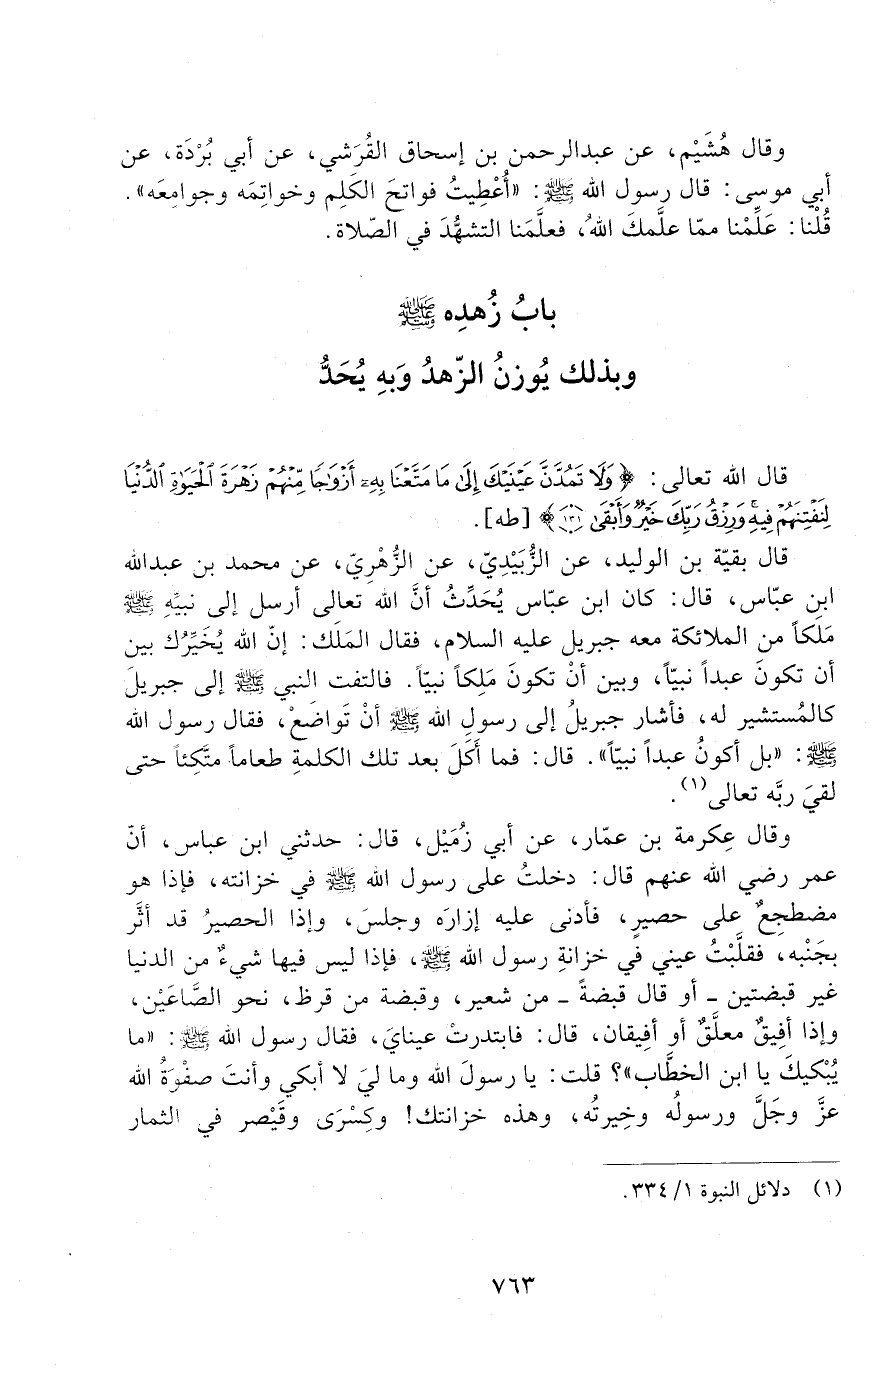 وقال هُشَيْم، عن عبدالرحمن بن إسحاق القُرَشي، عن أبي بُرْدَة، عن
أبي موسى: قال رسول الله ﷺ: «أُعْطِيتُ فواتحَ الكَلِم وخواتِمَه وجوامِعَه».
قُلْنا: عَلِّمْنا ممّا علَّمكَ اللهُ، فعلَّمَنا التشهُّدَ في الصّلاة.
بابُ زُهدِه ﷺ
وبذلك يُوزنُ الزّهدُ وَبهِ يُحَدُّ
قال الله تعالى: ﴿وَلَا تَمُدَّنَّ عَيْنَيْكَ إِلَىٰ مَا مَتَّعْنَا بِهِۦٓ أَزْوَٰجًا مِّنْهُمْ زَهْرَةَ ٱلْحَيَوٰةِ ٱلدُّنْيَا
لِنَفْتِنَهُمْ فِيهِ ۚ وَرِزْقُ رَبِّكَ خَيْرٌ وَأَبْقَىٰ ﴿١٣١﴾﴾ [طه].
قال بقيّة بن الوليد، عن الزُّبَيْدِيّ، عن الزُّهْرِيّ، عن محمد بن عبدالله
ابنِ عبّاس، قال: كان ابن عبّاس يُحَدِّثُ أنَّ الله تعالى أرسل إلى نبيِّهِ ﷺ
مَلَكاً من الملائكة معه جبريل عليه السلام، فقال المَلَك: إنّ الله يُخَيِّرُك بين
أن تكونَ عبداً نبيّاً، وبين أنْ تكونَ مَلِكاً نبيّاً. فالتفت النبي ﷺ إلى جبريلَ
كالمُستشير له، فأشار جبريلُ إلى رسولِ الله ﷺ أنْ تَواضَعْ، فقال رسول الله
ﷺ: «بل أكونُ عبداً نبيّاً». قال: فما أَكَلَ بعد تلك الكلمةِ طعاماً متَّكِئاً حتى
لقيَ ربَّه تعالى(١).
وقال عِكرمة بن عمّار، عن أبي زُمَيْل، قال: حدثني ابن عباس، أنّ
عمر رضي الله عنهم قال: دخلتُ على رسول الله ﷺ في خزانته، فإذا هو
مضطجِعٌ على حصيرٍ، فأدنى عليه إزارَه وجلسَ، وإذا الحصيرُ قد أثَّر
بجَنْبه، فقلَّبْتُ عيني في خزانةِ رسول الله ﷺ، فإذا ليس فيها شيءٌ من الدنيا
غير قبضتين - أو قال قبضةً - من شعير، وقبضة من قرظ، نحو الصَّاعَيْن،
وإذا أفِيقٌ معلَّقٌ أو أفِيقان، قال: فابتدرتْ عينايَ، فقال رسول الله ﷺ: «ما
يُبْكيكَ يا ابن الخطَّاب»؟ قلت: يا رسولَ الله وما ليَ لا أبكي وأنتَ صفْوَةُ الله
عزَّ وجَلَّ ورسولُه وخِيرتُه، وهذه خزانتك! وكِسْرَى وقَيْصر في الثمار
(١) دلائل النبوة ١/ ٣٣٤.
٧٦٣